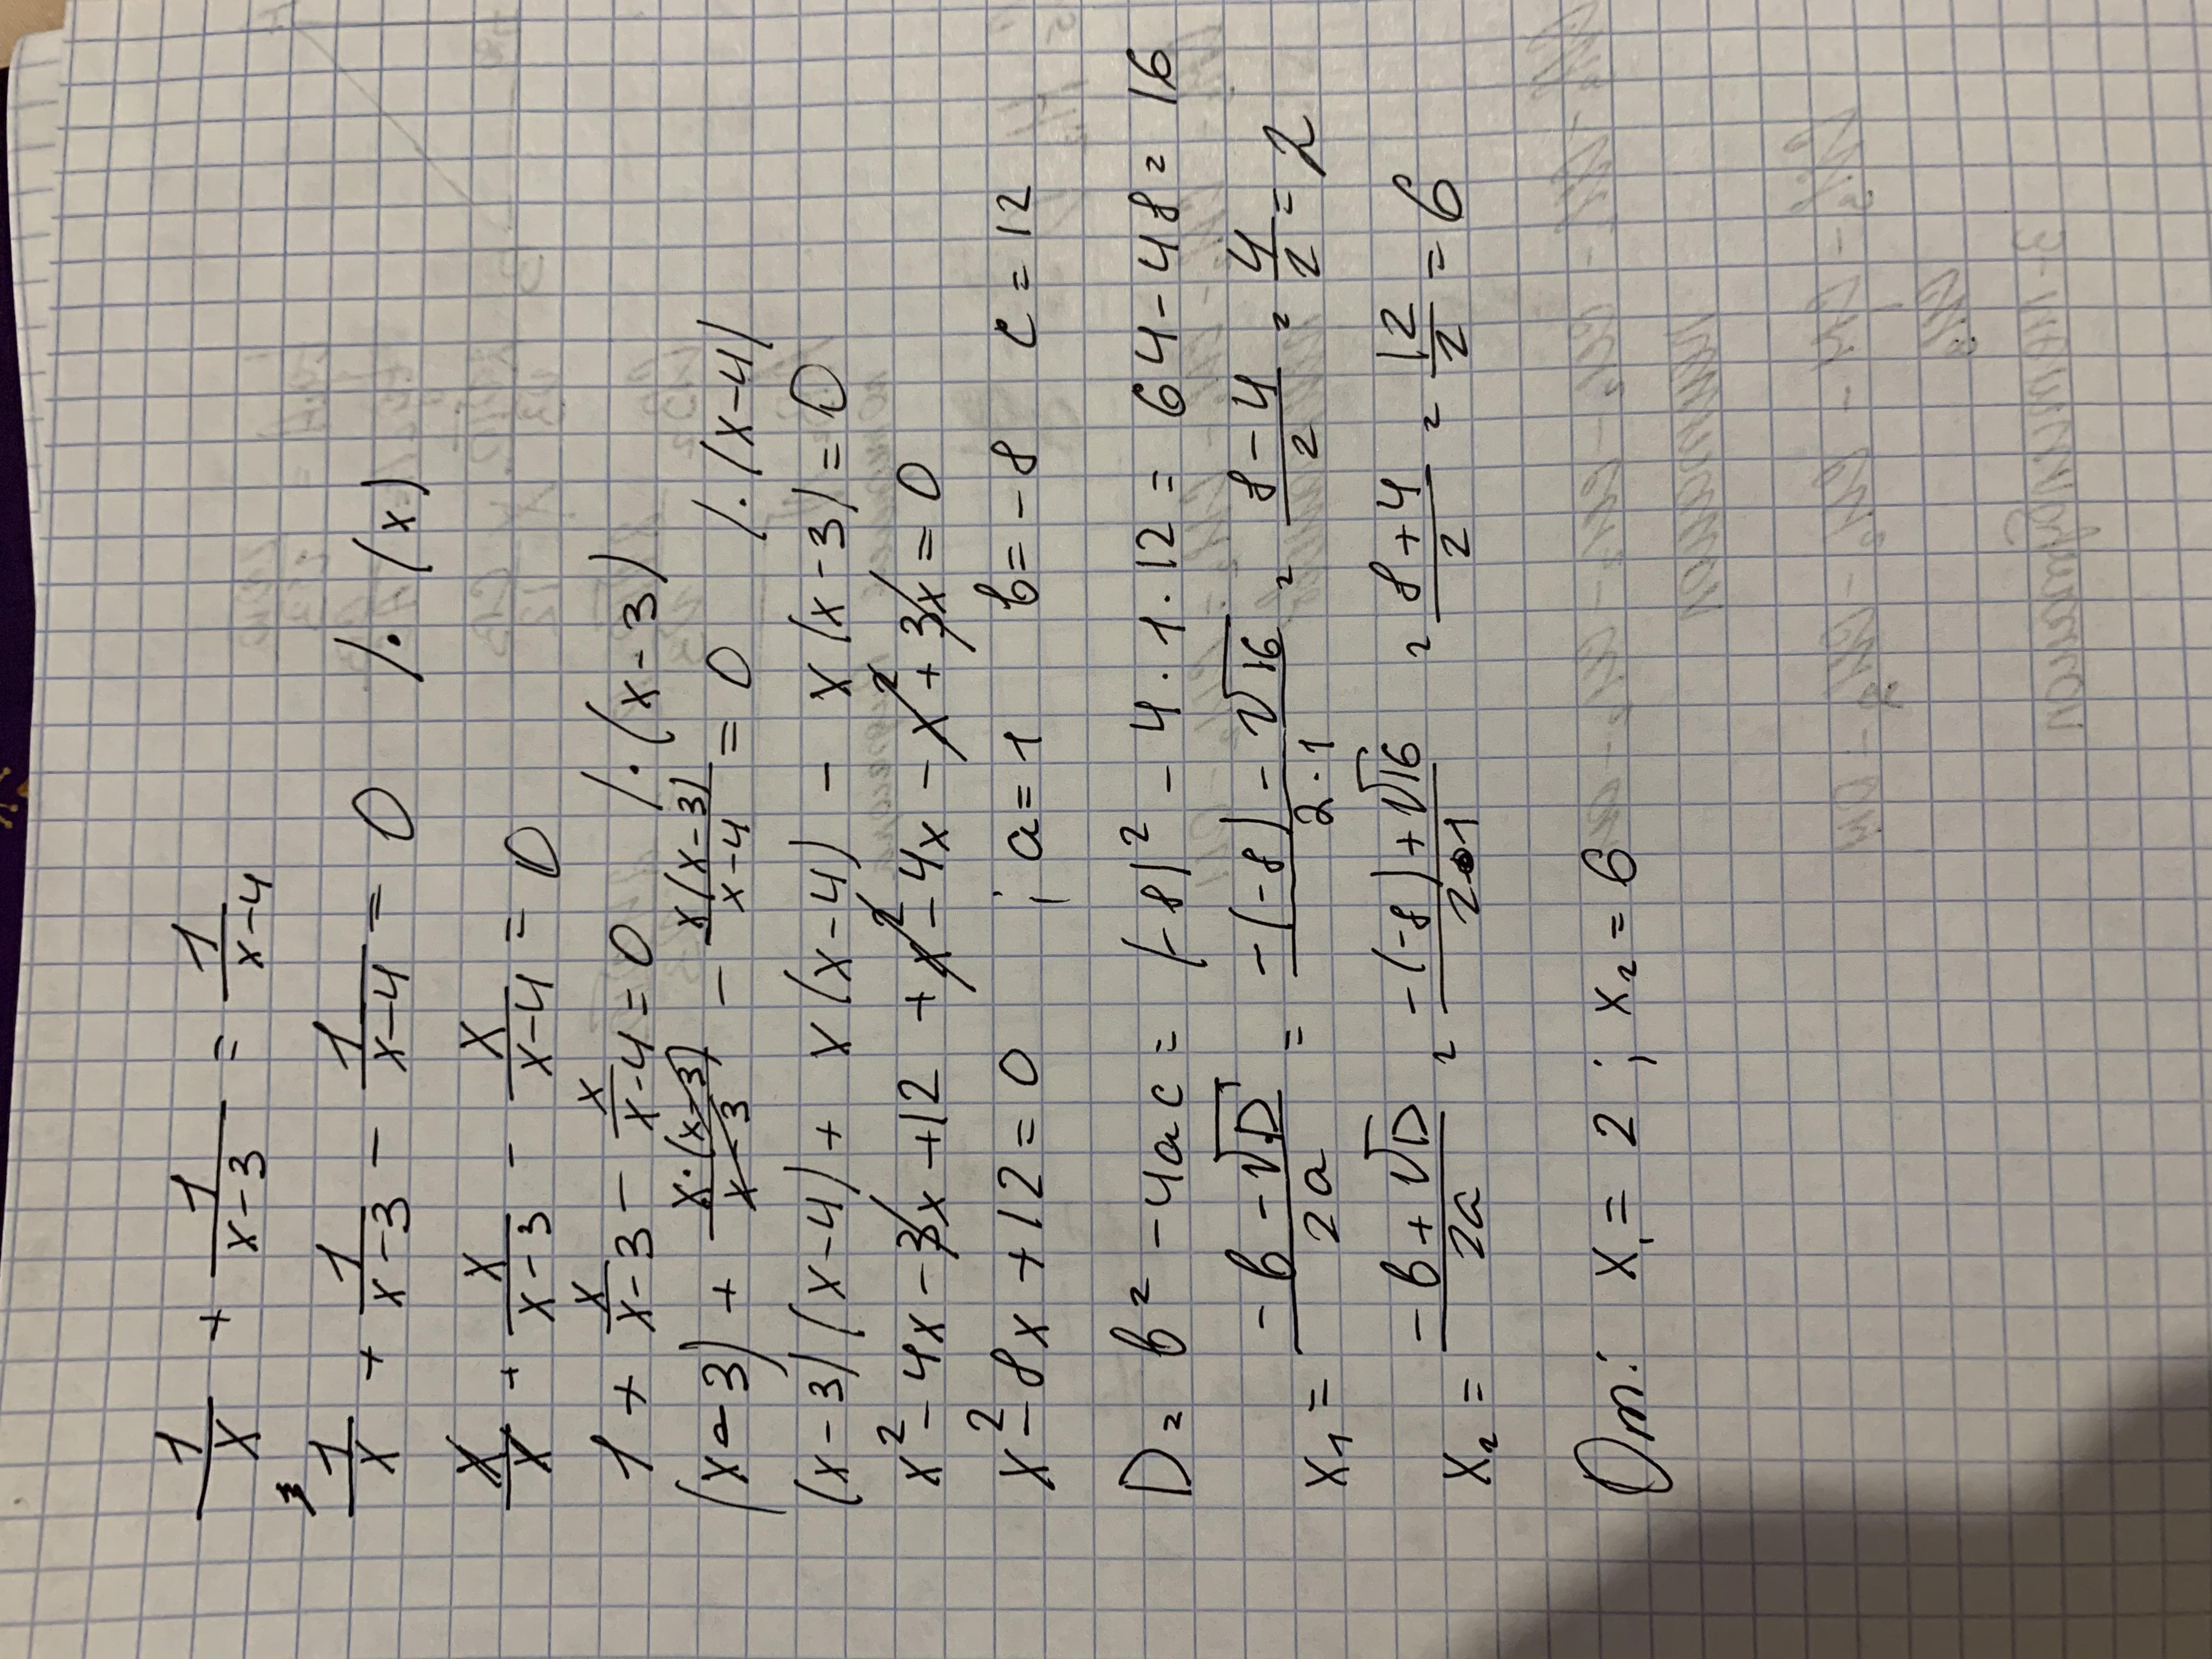 1/x + 1/(x-3) = 1/(x-4)
1/x + 1/(x-3) - 1/(x-4) = 0 /·(x)
x/x + x/(x-3) - x/(x-4) = 0
1 + x/(x-3) - x/(x-4) = 0 /·(x-3)
(x-3) + x·(x-3)/(x-3) - x(x-3)/(x-4) = 0 /·(x-4)
(x-3)(x-4) + x(x-4) - x(x-3) = 0
x² - 4x - 3x + 12 + x² - 4x - x² + 3x = 0
x² - 8x + 12 = 0 ; a = 1 b = -8 c = 12
D = b² - 4ac = (-8)² - 4·1·12 = 64 - 48 = 16
x₁ = (-b - √D)/2a = (-(-8) - √16)/(2·1) = (8 - 4)/2 = 4/2 = 2
x₂ = (-b + √D)/2a = (-(-8) + √16)/(2·1) = (8 + 4)/2 = 12/2 = 6
От: x₁ = 2 ; x₂ = 6